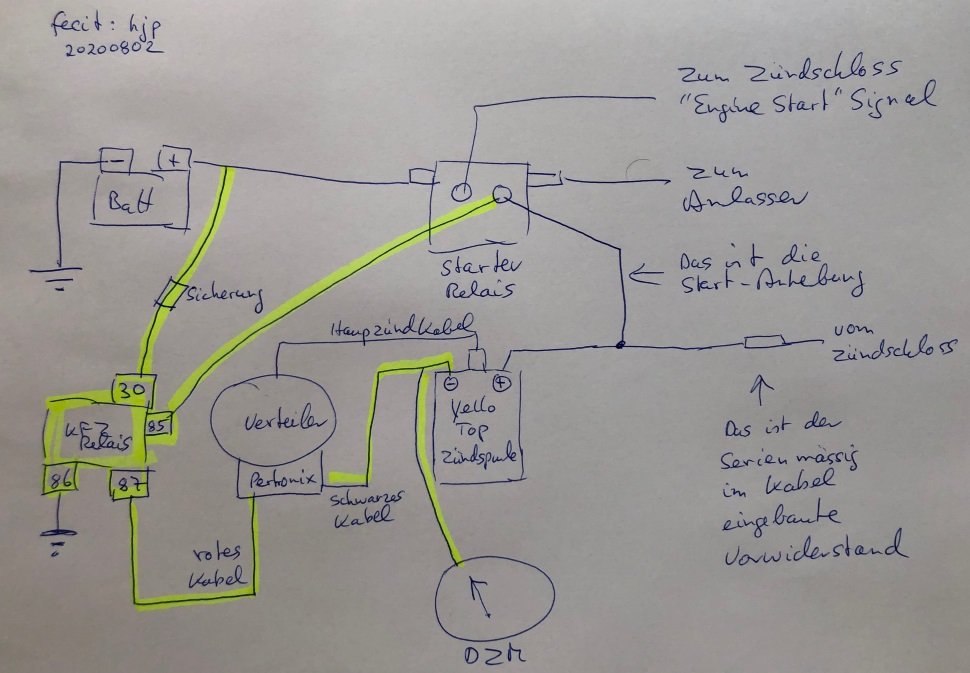 fecit: hjp
20200802
Zum Zündschloss
"Engine Start" Signal
-
+
Batt
Zum
Anlasser
Starter
Relais
Das ist die
Start-Anhebung
Sicherung
Haupzündkabel
vom
Zündschloss
30
-
+
KFZ
Relais
85
Verteiler
Yello
Top
Zündspule
86
87
Pertronix
Schwarzes
Kabel
Das ist der
Serienmässig
im Kabel
eingebaute
Vorwiderstand
rotes
Kabel
DZM